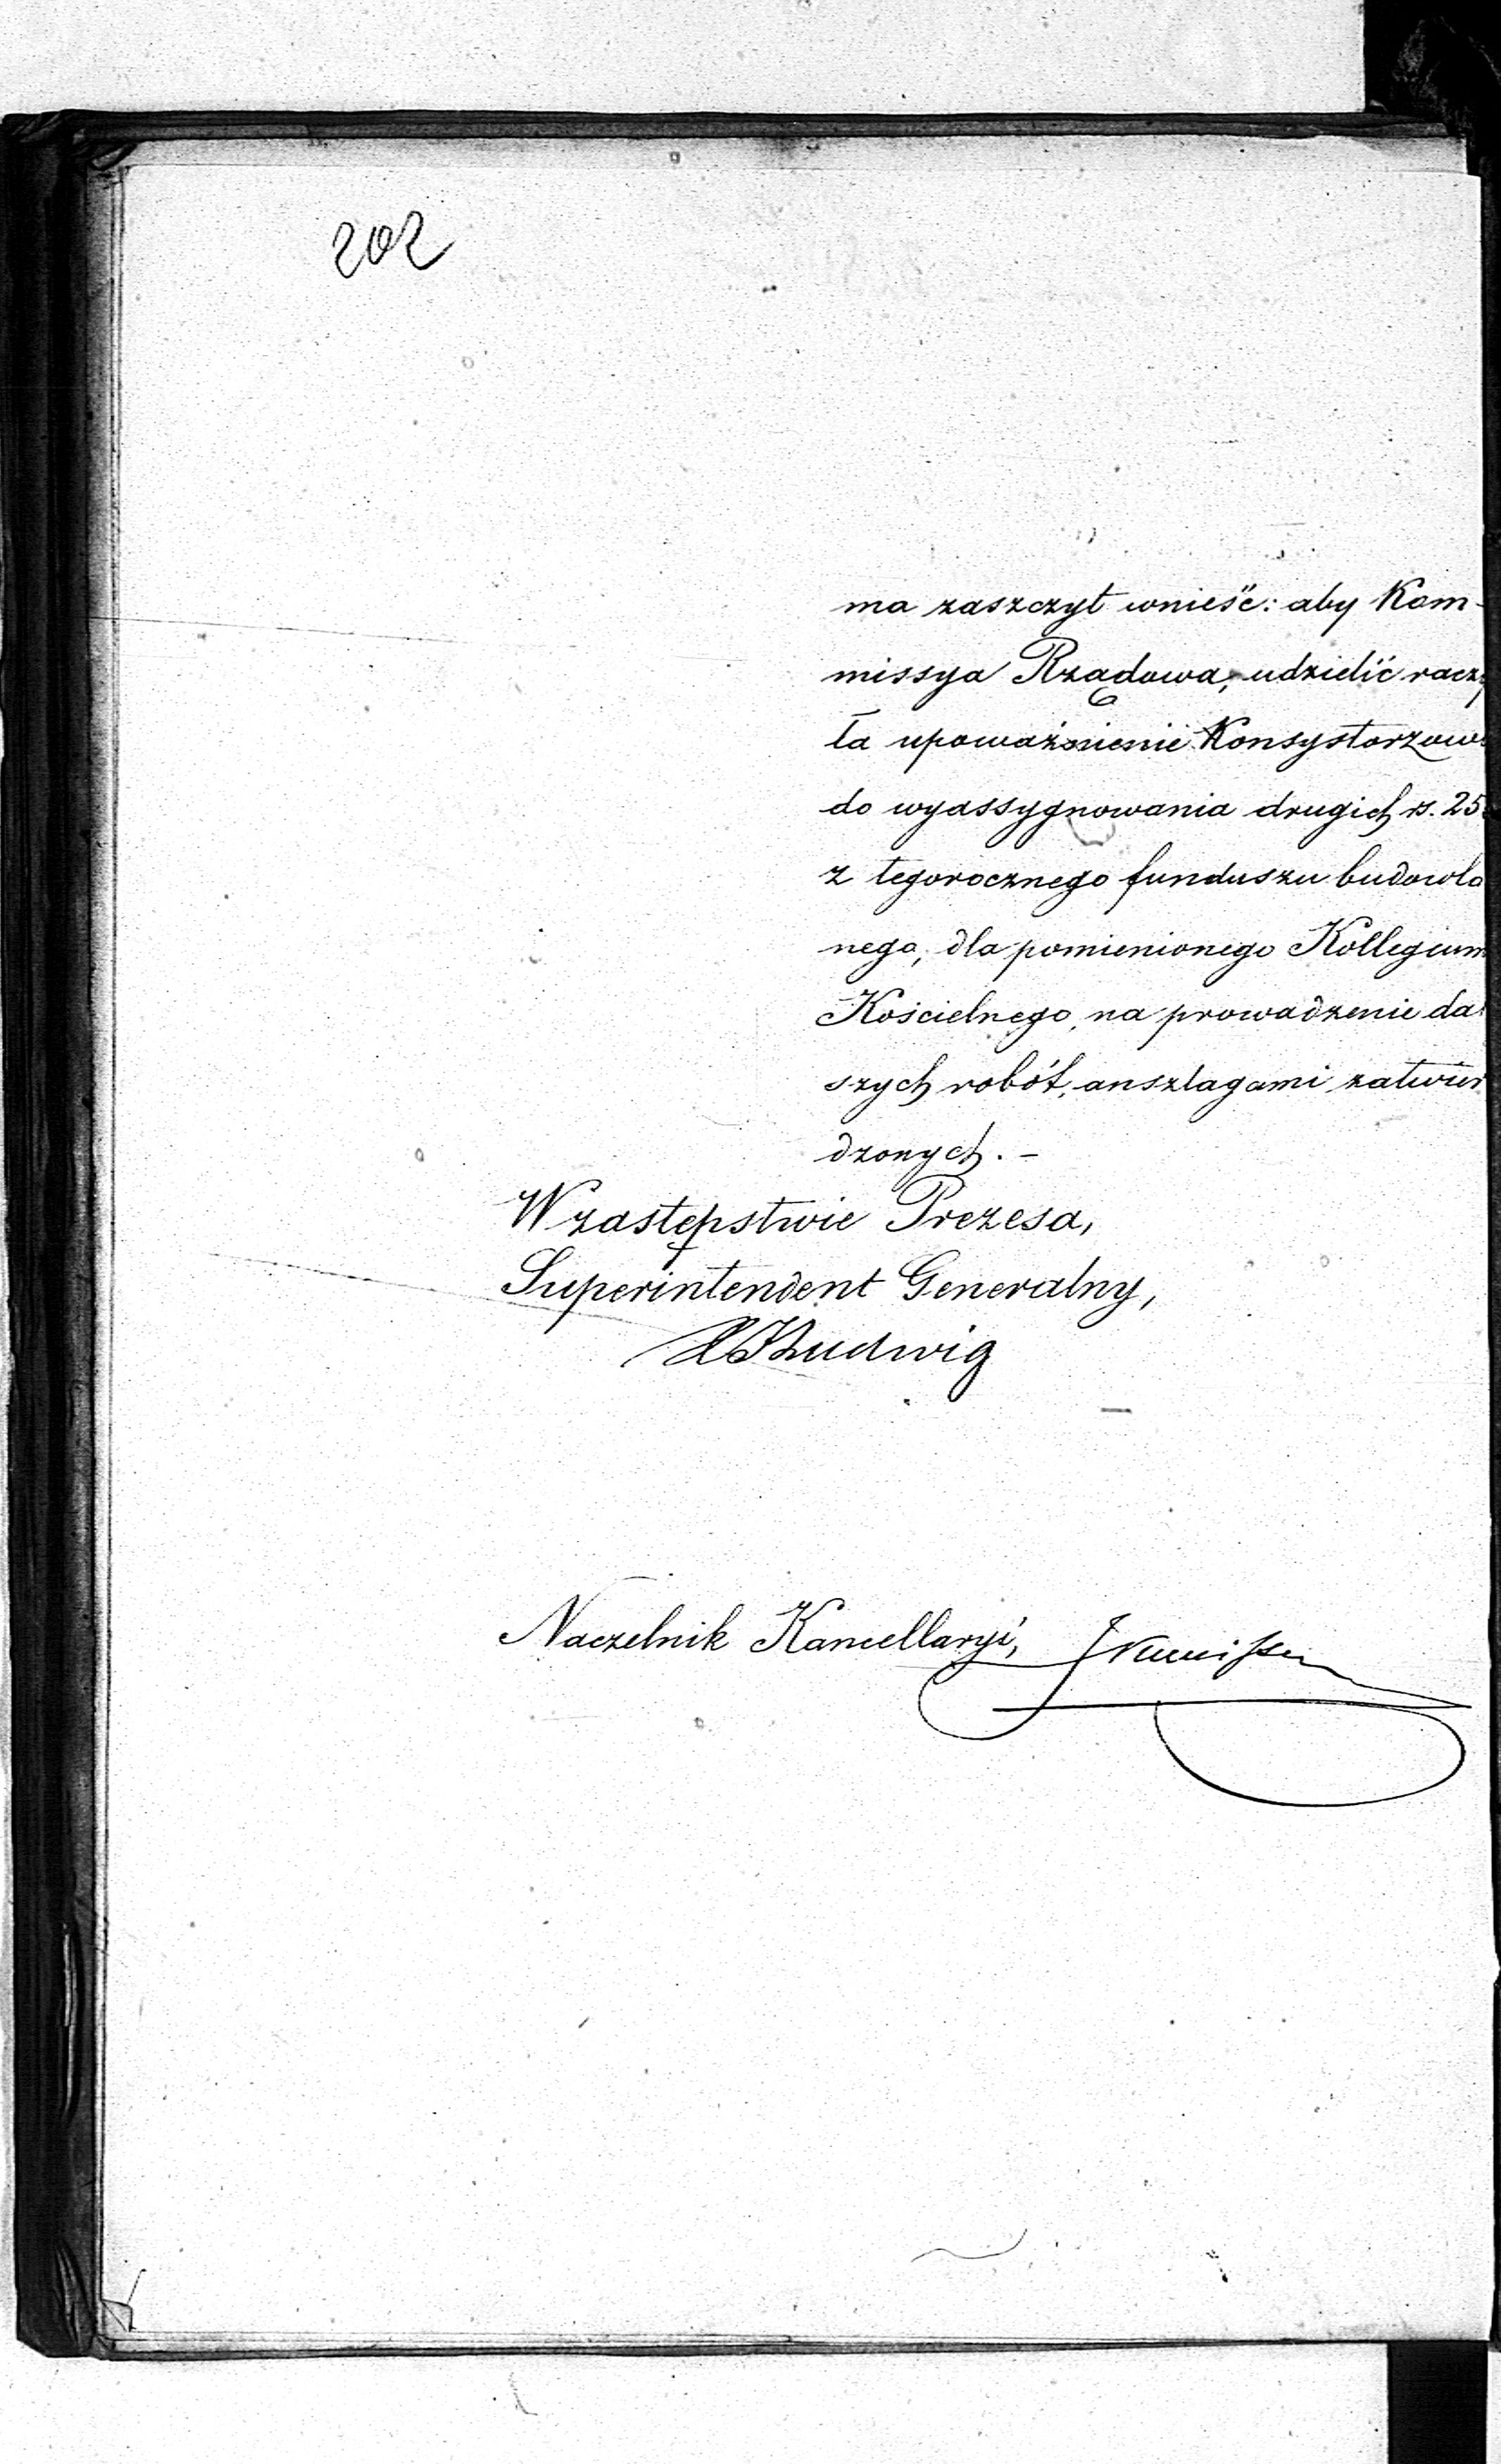 202
ma zaszczyt wnieść: aby Kom-
missya Rządowa, udzielić raczy
ła upoważnienie Konsystorzowi
do wyassygnowania drugich rs. 25
z tegorocznego funduszu budowla
nego, dla pomienionego Kollegium
Kościelnego, na prowadzenie dal
szych robót, anszlagami zatwier
dzonych. -
W zastępstwie Prezesa,
Superintendent Generalny,
Ludwig
Naczelnik Kancellaryi,